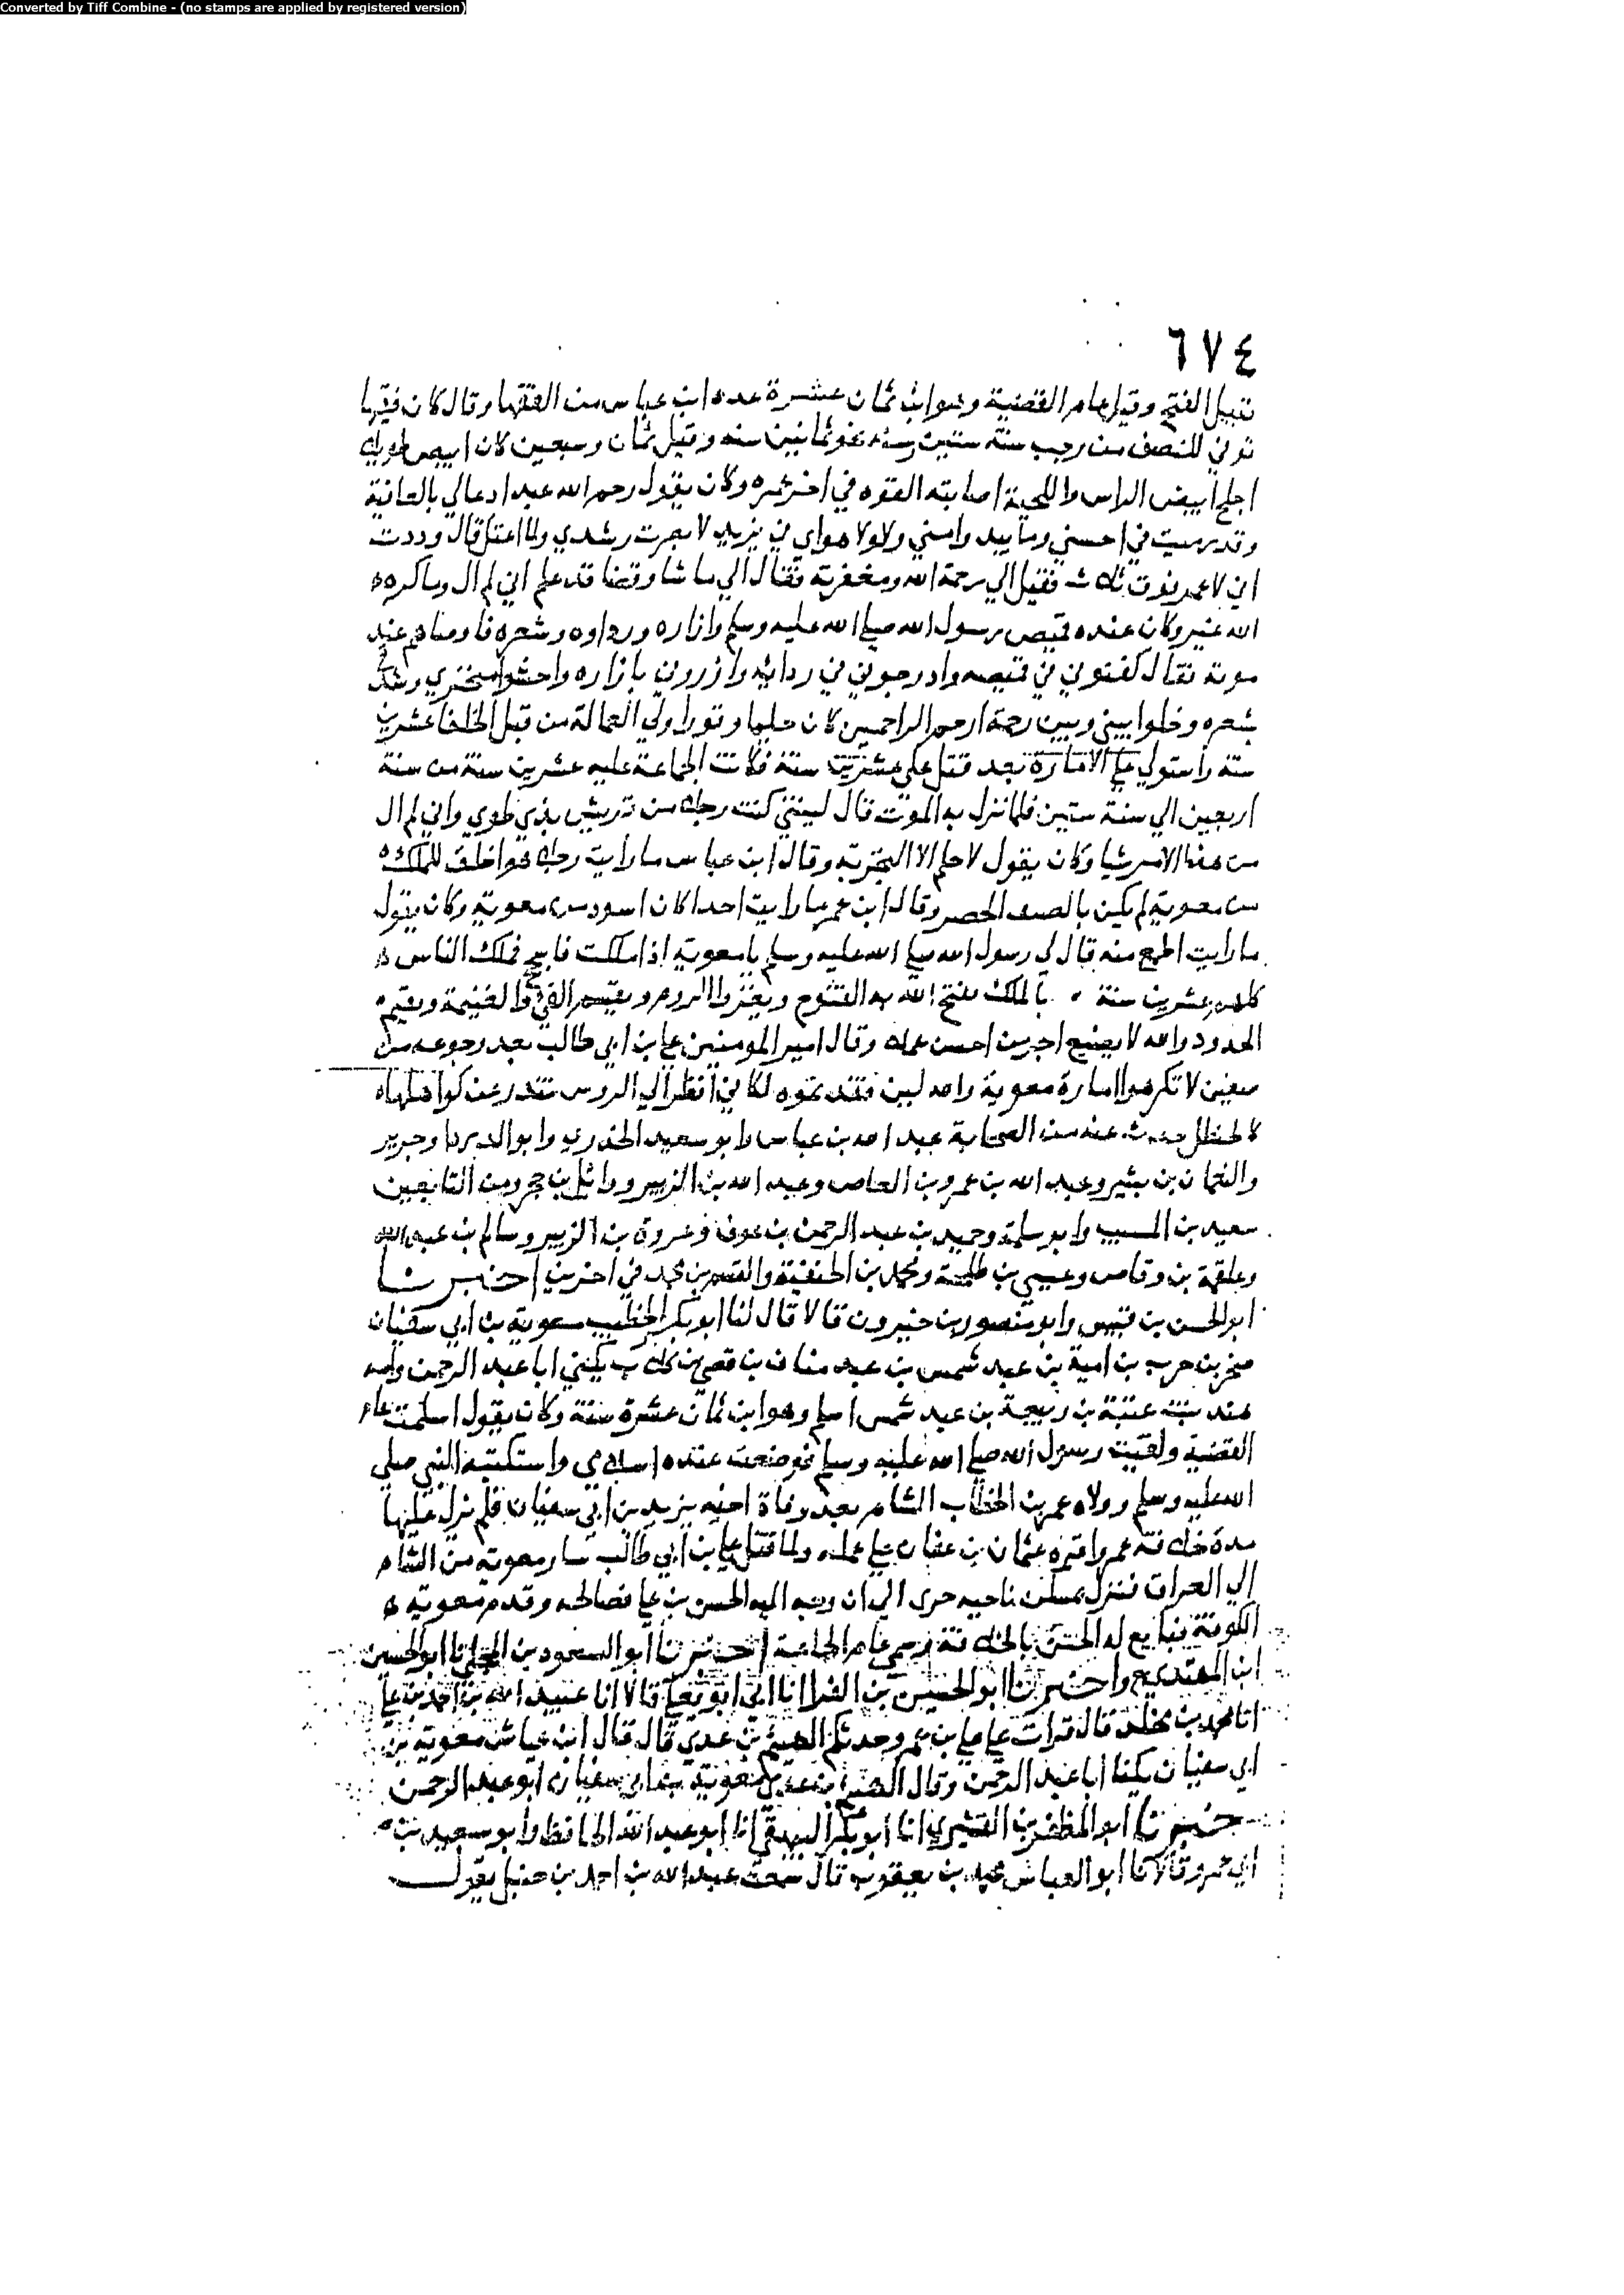 Converted by Tiff Combine - (no stamps are applied by registered version)
٦٧٤
قبيل الفتح وقيل عام القضية وهو ابن ثمان عشرة عده ابن عباس من الفقها وقال كان فقيها
توفي للنصف من رجب سنة ستين وسنه نحو ثمانين سنه وقيل ثمان وسبعين كان ابيض طويلا
اجلح ابيض الراس واللحية اصابته اللقوه في اخر عمره وكان يقول رحم الله عبدا دعالي بالعافية
وقد رميت في احسني وما يبد وامني ولولا هواي في يزيد لابصرت رشدي ولما اعتل قال وددت
اني لا اعمر فوق ثلاث فقيل الي رحمة الله ومغفرته فقال الي ما شا وقضا قد علم اني لم ال وما كره
الله غير وكان عنده قميص رسول الله صلي الله عليه وسلم وازاره ورداوه وشعره فاوصاهم عند
موته فقال كفنوني في قميصه وادرجوني في ردايه وازروني بازاره واحشوا منخري وشدقي
بشعره وخلوا بيني وبين رحمة ارحم الراحمين كان حليما وقورا ولي العمالة من قبل الخلفا عشرين
سنة واستولي علي الامارة بعد قتل علي عشرين سنة فكانت الجماعة عليه عشرين سنة من سنة
اربعين الي سنة ستين فلما نزل به الموت قال ليتني كنت رجلا من قريش بذي طوي واني لم ال
من هذا الامر شيا وكان يقول لا حلم الا التجربة وقال ابن عباس ما رايت رجلا هو اخلق للملك
من معوية لم يكن بالضيق الحصر وقال ابن عمر ما رايت احدا كان اسود من معوية وكان يقول
ما رايت اطمع منه قال لي رسول الله صلي الله عليه وسلم يا معوية اذا ملكت فاسجح فملك الناس
كلهم عشرين سنة بالملك يفتح الله به الفتوح ويغزوا الروم ويقسم الفي والغنيمة ويقيم
الحدود والله لا يضيع اجر من احسن عملا وقال امير المومنين علي بن ابي طالب بعد رجوعه من
صفين لا تكرهوا امارة معوية والله لين فقدتموه لكاني انظر الي الروس تندر عن كواهلها
كالحنظل حدث عنه من الصحابة عبد الله بن عباس وابو سعيد الخدري وابو الدردا وجرير
والنعمان بن بشير وعبد الله بن عمرو بن العاص وعبد الله بن الزبير ووائل بن حجر ومن التابعين
سعيد بن المسيب وابو سلمة وحميد بن عبد الرحمن بن عوف وعروة بن الزبير وسالم بن عبد الله
وعلقمة بن وقاص وعيسي بن طلحة ومحمد بن الحنفية والقسم بن محمد في اخرين اخبرنا
ابو الحسن بن قبيس وابو منصور بن خيرون قالا قال لنا ابو بكر الخطيب معوية بن ابي سفيان
صخر بن حرب بن امية بن عبد شمس بن عبد مناف بن قصي بن كلاب يكني ابا عبد الرحمن وامه
هند بنت عتبة بن ربيعة بن عبد شمس اسلم وهو ابن ثمان عشرة سنة وكان يقول اسلمت عام
القضية ولقيت رسول الله صلي الله عليه وسلم فوضعت عنده اسلامي واستكتبه النبي صلي
الله عليه وسلم وولاه عمر بن الخطاب الشام بعد وفاة اخيه يزيد بن ابي سفيان فلم يزل عليها
مدة خلافة عمر واقره عثمان بن عفان علي عمله ولما قتل علي بن ابي طالب سار معوية من الشام
الي العراق فنزل بمسكن ناحيه حربي الي ان وجه اليه الحسن بن علي فصالحه وقدم معوية
الكوفة فبايع له الحسن بالخلافة وسمي عام الجماعة اخبرنا ابو السعود بن المجلي نا ابو الحسين
ابن المهتدي ح واخبرنا ابو الحسين بن الفرا انا ابي ابو يعلي قالا انا عبيد الله بن احمد بن علي
انا محمد بن مخلد قال قرات علي علي بن عمرو حدثكم الهيثم بن عدي قال قال ابن عياش معوية بن
ابي سفيان يكنا ابا عبد الرحمن وقال الهيثم بن عدي معوية بن ابي سفيان ابو عبد الرحمن
اخبرنا ابو المظفر بن القشيري انا ابو بكر البيهقي انا ابو عبد الله الحافظ وابو سعيد بن
ابي عمرو قالا نا ابو العباس محمد بن يعقوب قال سمعت عبد الله بن احمد بن حنبل يقول